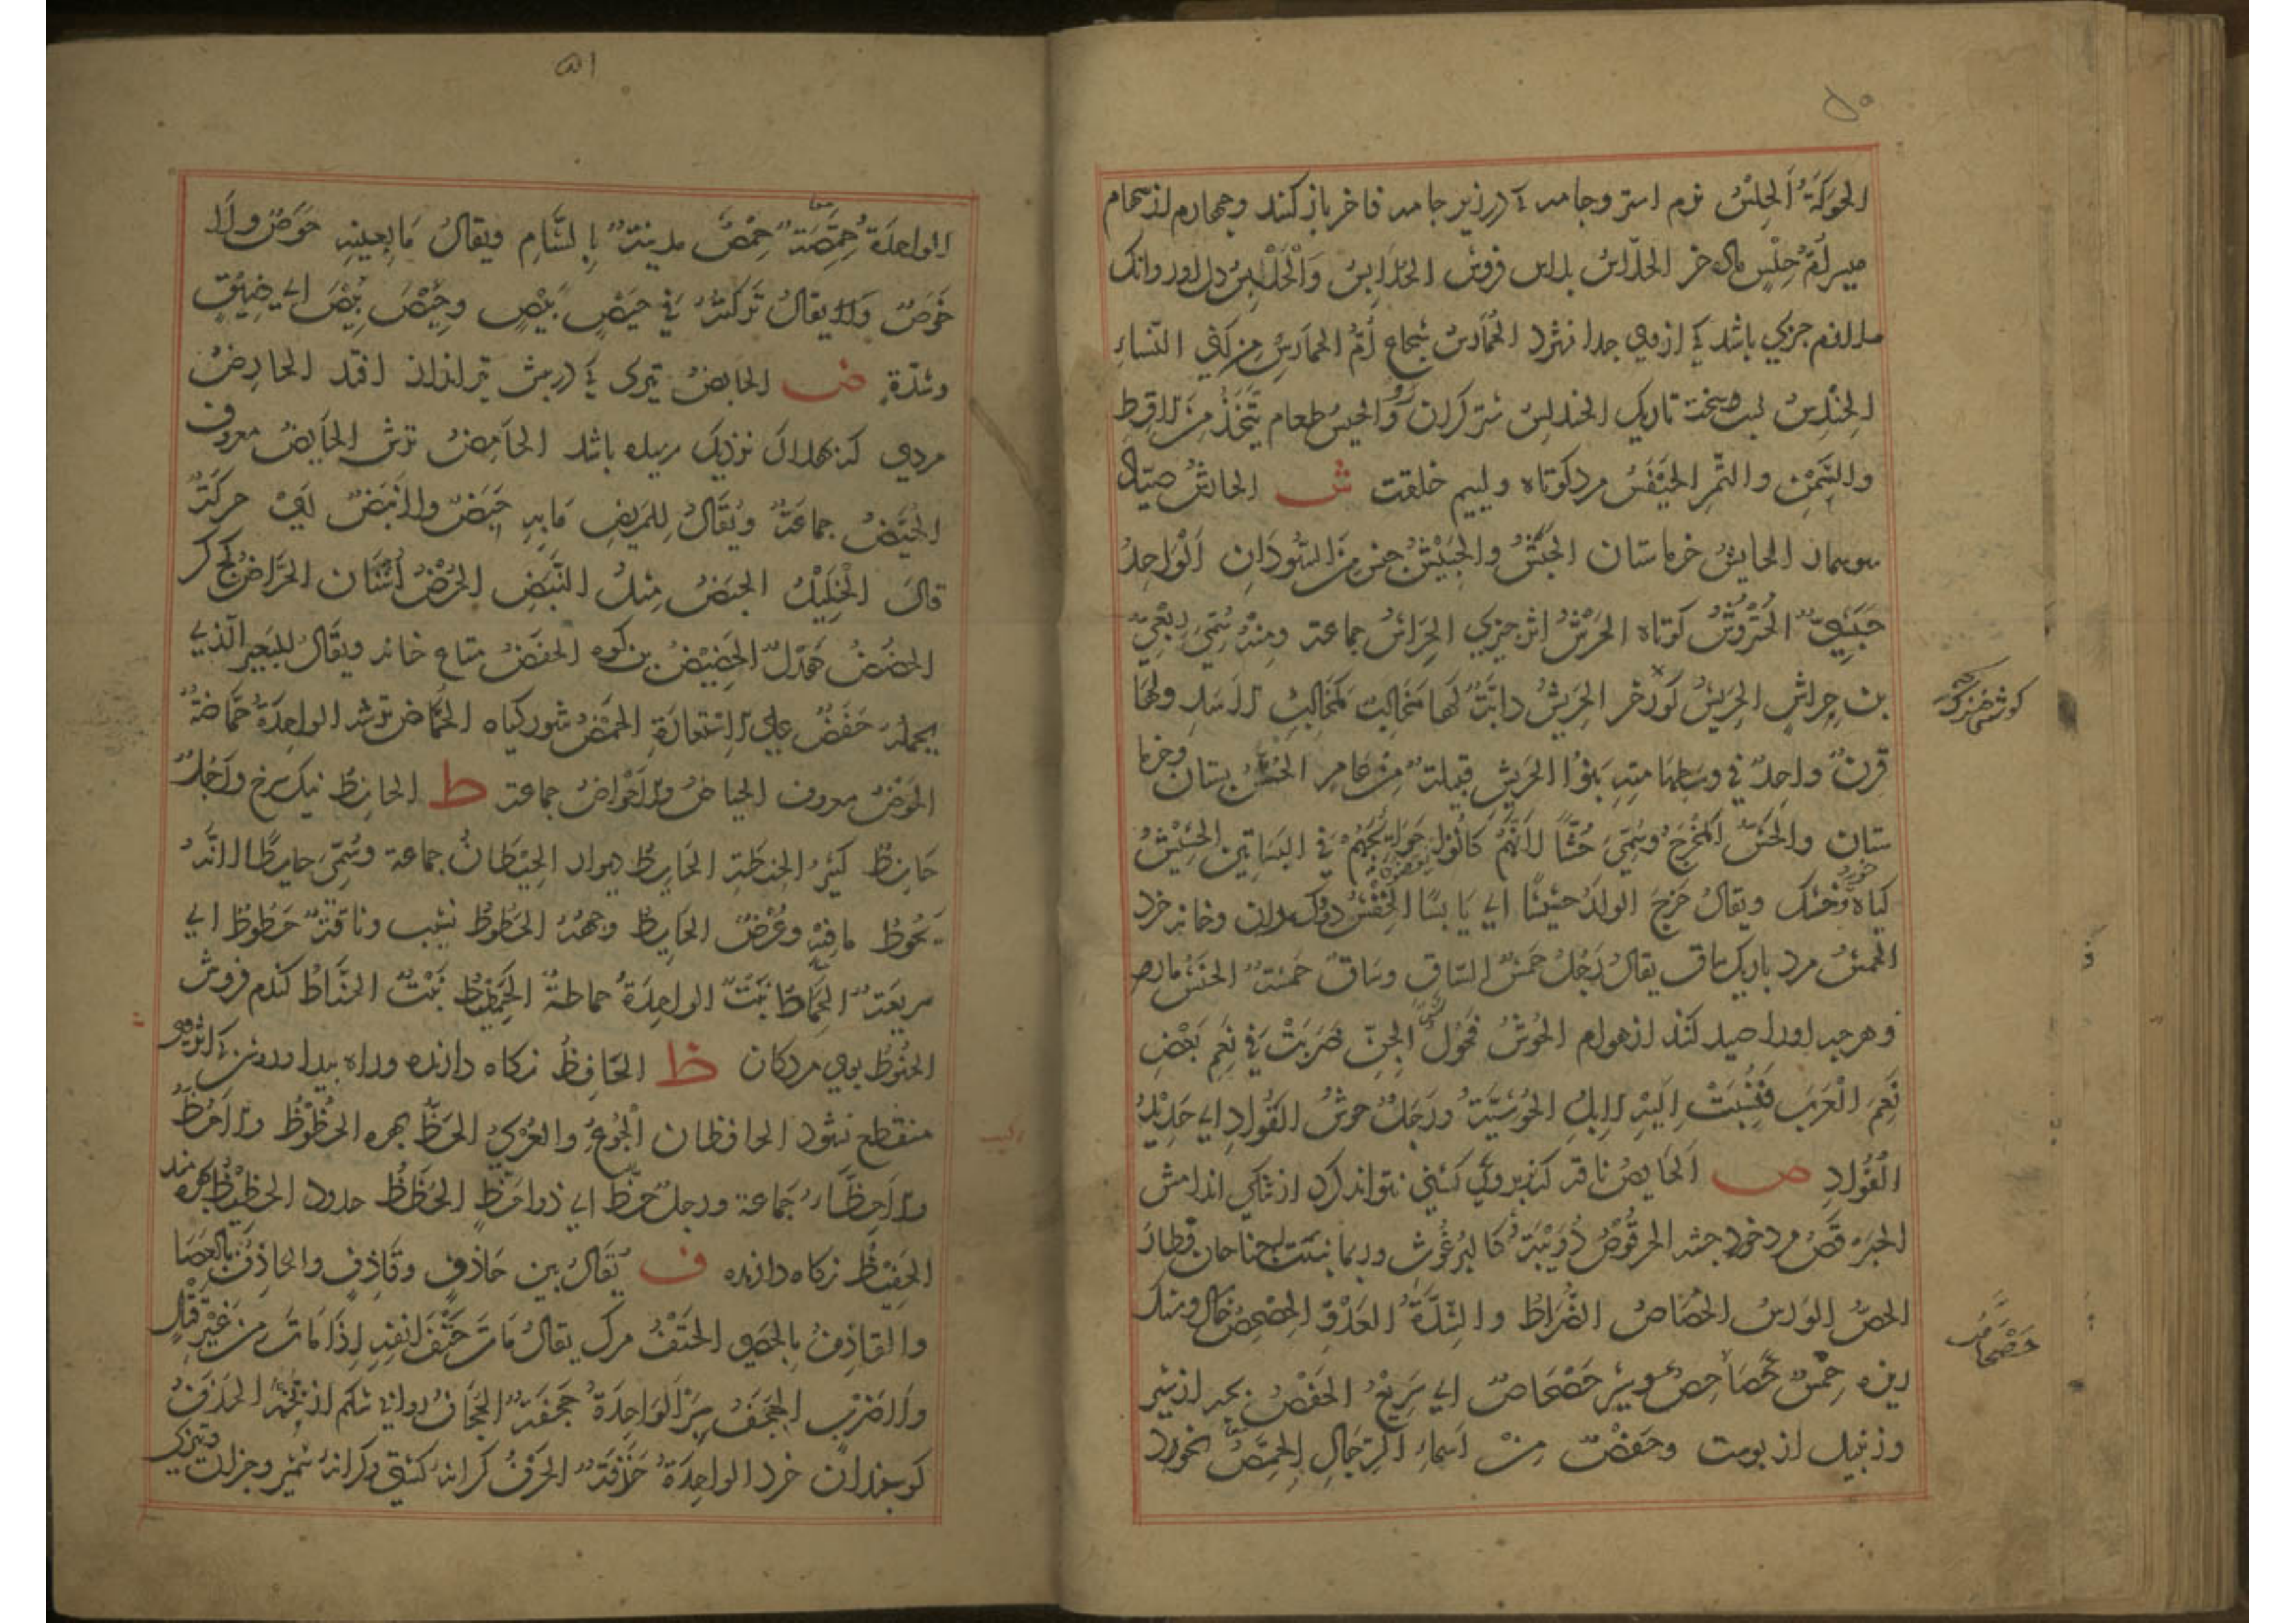 ۵۰
الحَرَكَةُ الحِلْسُ نرم استر وجامه كه در زير جامه فاخر باز كنند وچهارم از سهام
ميسر أمّ حِلْسٍ ماده خر الحلّاسُ بلاس فروش الحُلَابِسُ وَالْحَلْبَسُ دلاور وانك
ملازم چيزي باشد كه ازوي جدا نشود الحُمَارِسُ شجاع أُمُّ الحمارسِ من كُنَى النّساءِ
الحِنْدِسُ شب سخت تاريك الحندلس شتر كران رَو والحيسُ طعام يُتَّخَذُ مِنَ الاقِطِ
والسَّمْنِ والتَّمْرِ الحَيْفَسُ مرد كوتاه ولييم خلقت ش الحارشُ صيّاد
سوسمار الحايشُ خرماستان الحَبَشُ والحَبِيْشُ جنس مِنَ السُّودَانِ اَلْوَاحِدُ
حَبَشِيٌّ الحُتْرُوْشُ كوتاه الحَرْشُ اثر چيزي الحِرَاشُ جماعة ومِنْهُ سُمِّيَ رِبْعِيُّ
بن حِراشٍ الحَرِيشُ كوزخر الحَرِيشُ دابَّةٌ لَها مَخَالِيبُ كمَخَالِيبِ الاَسَدِ ولَهَا
قَرنٌ واحِدٌ في وسطِ هامتِهِ بَنُوْا الحَرِيشِ قبيلةٌ مِنْ عَامِر الحُشُّ بستان وخرما
ستان والحَشُّ المَخْرَجُ وسُمِّيَ حُشًّا لِاَنَّهُمْ كَانُوْا يَقْضُونَ حَوَائِجَهُمْ في البَسَاتِينِ الحَشِيْشُ
كياه خشك ويقالُ خَرَجَ الولدُ حشيشًا اي يَابسًا الحِفْشُ دوكدان وخانه خرد
الحمشُ مرد باريك ساق يقالُ رَجُلٌ حَمْشُ السّاقِ وسَاقٌ حَمْشَةٌ الحَنَشُ مار
وهرچه اورا صيد كنند از هوام الحُوشُ فَحُولُ الجِنِّ ضَرَبَتْ فِي نَعَمِ بَعْضِ
نَعَمِ الْعَرَبِ فَنُسِبَتْ اِلَيْهِ الاِبِلُ الحُوشِيَّةُ ورَجُلٌ حوشُ الفُوَادِ اي حَدِيْدُ
الفُوَادِ ص اَلحَايصُ ناقه كه بروي كشني نتواند كرد از تنكي اندامش
الحبرقصُ مرد خورد جثه الحرقُوْصُ دُوَيْبَةٌ كَالبُرْغُوثِ وربما نبتت له جناحان فطارَ
الحصُّ الورسُ الحُصَاصُ الضُّرَاطُ والشِّدَّةُ العَدْوِ الحِصْحِصُ خاك وسنك
ريزه خِمْسٌ حَصَاحِصٌ وسيرٌ حَصْحَاصٌ اي سَرِيعٌ الحَفْصُ بچه از شير
وزنبيل از پوست وحَفْصٌ مِنْ اَسماءِ الرِّجَالِ الحِمَّصُ نخود
حَصْحَاصٌ
۵۱
الواحدَةُ حِمَّصَةٌ حِمْصُ مدينةٌ بِالشَّامِ ويقالُ مَا بِعينِهِ حَوَصٌ ولَا
خَوَصٌ وَلا يقالُ تَركتُهُ فِي حَيْصَ بَيْصَ وحِيْصَ بِيْصَ اي ضِيْقٍ
وشدّةٍ ض الحابضُ تيرى كه در پيش تير انداز افتد الحارضُ
مردي كه بهلاك نزديك رسيده باشد الحَامِضُ ترش الحَايضُ معروف
الحُيَّضُ جماعَةٌ ويُقَالُ لِلمَريضِ مَا بِهِ حَبَضٌ ولا نَبَضٌ اَيْ حركَةٌ
قالَ الْخَلِيْلُ الحبَضُ مِثلُ النَّبَضِ الحُرْضُ اُشْنَان الحَرَّاضُ كچ كر
الحضضُ هَدَلٌ الحَضِيْضُ بن كوه الحفَضُ متاع خانه ويُقَالُ لِلبَعِيرِ الّذِي
يحملهُ حَفَضٌ علي الاِسْتِعَارَةِ الحَمْضُ شور كياه الحُمَّاضُ ترشه الواحِدَةُ حُمَّاضَةٌ
الحَوْضُ معروف الحياضُ والاَحْوَاضُ جماعة ط الحانِطُ نيك سرخ ورَجُلٌ
حَانِطٌ كَثِيْرُ الحِنطَةِ الحَايِطُ ديوار الحِيْطَانُ جماعة وسُمِّيَ حايطًا لاَنَّهُ
يَحُوْطُ ما فِيْهِ وعُرْضُ الحَايِطِ وجهُهُ الحَطُوطُ نشيب وناقَةٌ حَطُوْطٌ اي
سريعَةٌ الحَمَاطُ نَبْتٌ الواحِدَةُ حماطةٌ الحَمَطِيْطُ نَبْتٌ الحنَّاطُ كندم فروش
الحَنُوْطُ بوي مردكان ظ الحَافِظُ نكاه دارنده وراه پيدا وروشن كه اثر وي
منقطع نشود الحافظان الْجُوْعُ والعُرْيُ الحَظُّ بهره الحُظُوْظُ والاَحُظُّ
والاَحِظَّاءُ جَمَاعة ورجلٌ حَظٌّ اي ذوا حَظٍّ الحُظَظُ حدود الحَظِيْظُ بهره مند
الحَفِيْظُ نكاه دارنده ف يُقَالُ بين حَاذِفٍ وقَاذِفٍ والحَاذِفُ بِالعَصَا
والقَاذِفُ بِالحَصَى الحَتْفُ مرك يقالُ مَاتَ حَتْفَ اَنْفِهِ اِذَا مَاتَ مِنْ غَيْرِ قَتْلٍ
ولَا ضَرْبٍ الحجَفُ سِپَر الوَاحِدَةُ حَجَفَةٌ الحُجَافُ رواني شكم از تخمه الحَذَفُ
كوسپندان خرد الواحِدَةُ حَذَفَةٌ الحَرْفُ كرانه كشتي وكرانه شمشير وجز ان